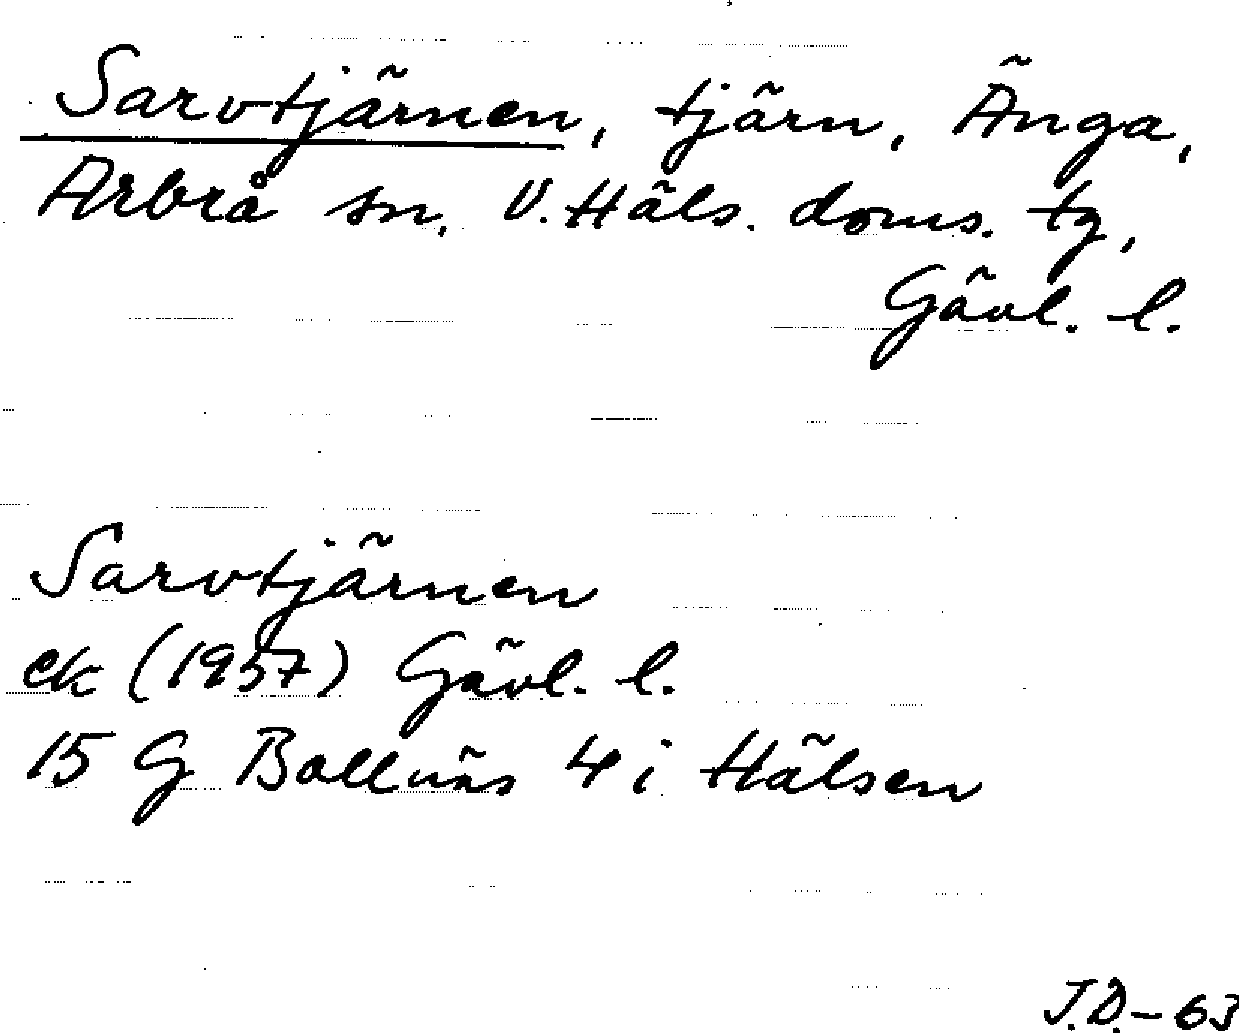 Sarvtjärnen, tjärn, Änga,
Arbrå sn, V. Häls. doms. tg,
Gävl. l.
Sarvtjärnen
ek (1957) Gävl. l.
15 G Bollnäs 4 i Hälsen
J.D. - 63